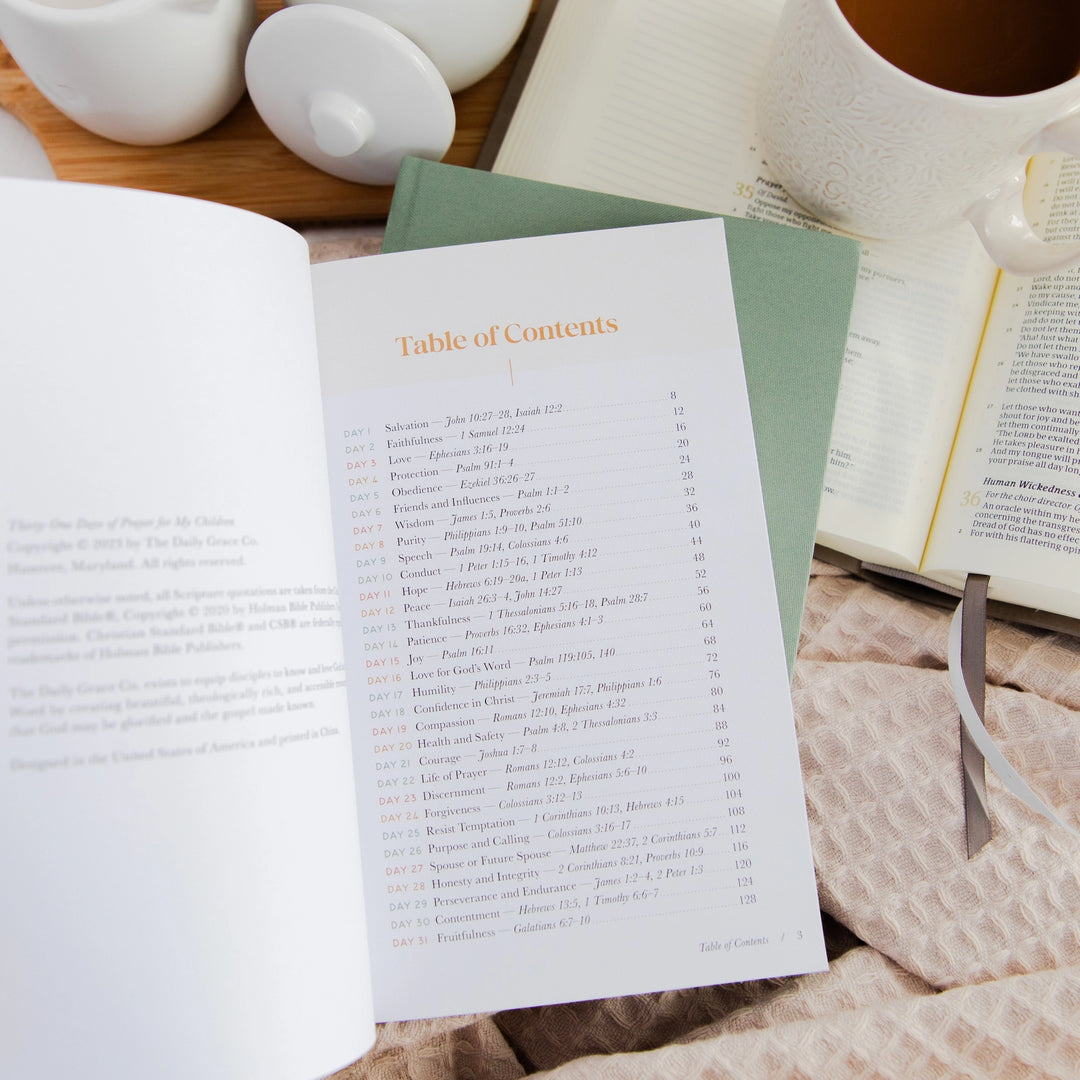 Thirty-One Days of Prayer for My Children
Copyright © 2023 by The Daily Grace Co.
Hanover, Maryland. All rights reserved.
Unless otherwise noted, all Scripture quotations are taken from
Standard Bible®, Copyright © 2020 by Holman Bible
permission. Christian Standard Bible® and CSB® are federally
trademarks of Holman Bible Publishers.
The Daily Grace Co. exists to equip disciples to know and love
Word by creating beautiful, theologically rich, and accessible
that God may be glorified and the gospel made known.
Designed in the United States of America and printed in China.
Table of Contents
DAY 1 Salvation — John 10:27–28, Isaiah 12:2 8
DAY 2 Faithfulness — 1 Samuel 12:24 12
DAY 3 Love — Ephesians 3:16–19 16
DAY 4 Protection — Psalm 91:1–4 20
DAY 5 Obedience — Ezekiel 36:26–27 24
DAY 6 Friends and Influences — Psalm 1:1–2 28
DAY 7 Wisdom — James 1:5, Proverbs 2:6 32
DAY 8 Purity — Philippians 1:9–10, Psalm 51:10 36
DAY 9 Speech — Psalm 19:14, Colossians 4:6 40
DAY 10 Conduct — 1 Peter 1:15–16, 1 Timothy 4:12 44
DAY 11 Hope — Hebrews 6:19–20a, 1 Peter 1:13 48
DAY 12 Peace — Isaiah 26:3–4, John 14:27 52
DAY 13 Thankfulness — 1 Thessalonians 5:16–18, Psalm 28:7 56
DAY 14 Patience — Proverbs 16:32, Ephesians 4:1–3 60
DAY 15 Joy — Psalm 16:11 64
DAY 16 Love for God's Word — Psalm 119:105, 140 68
DAY 17 Humility — Philippians 2:3–5 72
DAY 18 Confidence in Christ — Jeremiah 17:7, Philippians 1:6 76
DAY 19 Compassion — Romans 12:10, Ephesians 4:32 80
DAY 20 Health and Safety — Psalm 4:8, 2 Thessalonians 3:3 84
DAY 21 Courage — Joshua 1:7–8 88
DAY 22 Life of Prayer — Romans 12:12, Colossians 4:2 92
DAY 23 Discernment — Romans 12:2, Ephesians 5:6–10 96
DAY 24 Forgiveness — Colossians 3:12–13 100
DAY 25 Resist Temptation — 1 Corinthians 10:13, Hebrews 4:15 104
DAY 26 Purpose and Calling — Colossians 3:16–17 108
DAY 27 Spouse or Future Spouse — Matthew 22:37, 2 Corinthians 5:7 112
DAY 28 Honesty and Integrity — 2 Corinthians 8:21, Proverbs 10:9 116
DAY 29 Perseverance and Endurance — James 1:2–4, 2 Peter 1:3 120
DAY 30 Contentment — Hebrews 13:5, 1 Timothy 6:6–7 124
DAY 31 Fruitfulness — Galatians 6:7–10 128
Table of Contents / 3
35 Prayer
Of David.
Oppose my
fight those who fight
Take your
my pursuers,
them away.
him,
him?"
Lord, do not
Wake up and
to my cause,
24 Vindicate me,
in keeping with
and do not let
25 Do not let them
"Aha! Just what
Do not let them
"We have swallo
26 Let those who
be disgraced and
let those who exa
be clothed with sh
27 Let those who want
shout for joy and be
let them continually
"The LORD be exalted
He takes pleasure in h
28 And my tongue will p
your praise all day long
Human Wickedness
36 For the choir director.
An oracle within my he
concerning the transgres
Dread of God has no effec
2 For with his flattering opin